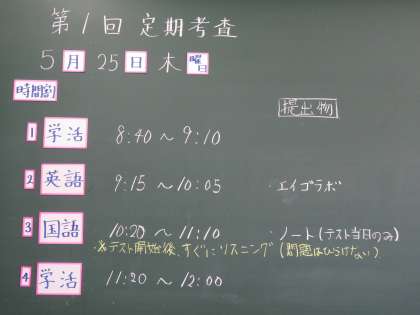 第1回定期考査
5月25日木曜日
時間割
提出物
1 学活 8:40～9:10
2 英語 9:15～10:05 ・エイゴラボ
3 国語 10:20～11:10 ・ノート(テスト当日のみ)
・※テスト開始後、すぐにリスニング(問題はひらけない)
4 学活 11:20～12:00